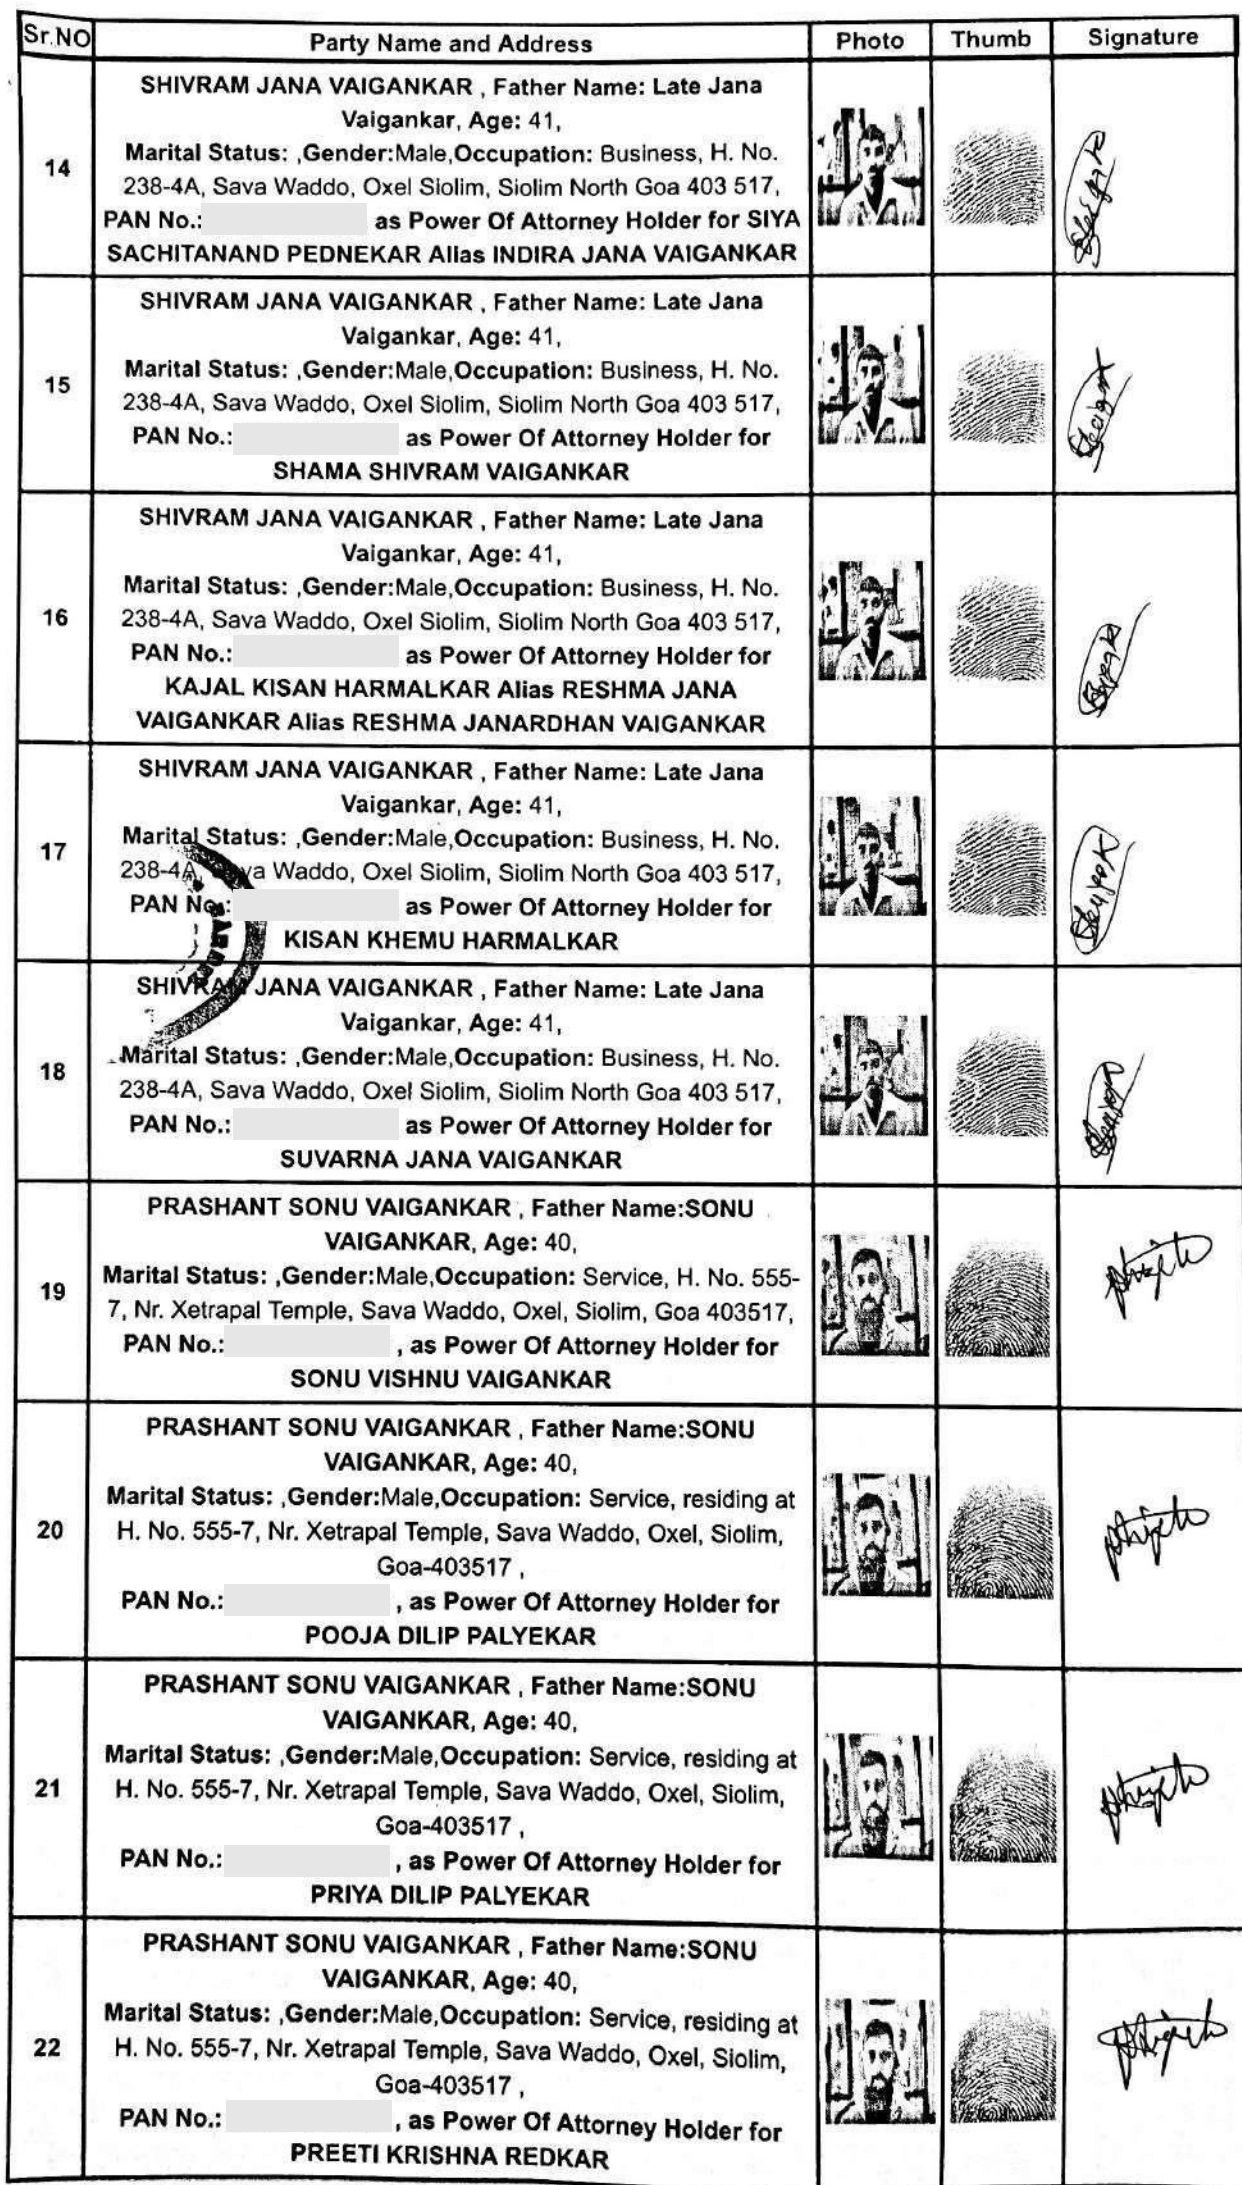 Sr.NO Party Name and Address Photo Thumb Signature
SHIVRAM JANA VAIGANKAR , Father Name: Late Jana
Vaigankar, Age: 41,
Marital Status: ,Gender:Male,Occupation: Business, H. No.
14
238-4A, Sava Waddo, Oxel Siolim, Siolim North Goa 403 517,
PAN No.: as Power Of Attorney Holder for SIYA
SACHITANAND PEDNEKAR Alias INDIRA JANA VAIGANKAR
SHIVRAM JANA VAIGANKAR , Father Name: Late Jana
Vaigankar, Age: 41,
Marital Status: ,Gender:Male,Occupation: Business, H. No.
15
238-4A, Sava Waddo, Oxel Siolim, Siolim North Goa 403 517,
PAN No.: as Power Of Attorney Holder for
SHAMA SHIVRAM VAIGANKAR
SHIVRAM JANA VAIGANKAR , Father Name: Late Jana
Vaigankar, Age: 41,
Marital Status: ,Gender:Male,Occupation: Business, H. No.
16
238-4A, Sava Waddo, Oxel Siolim, Siolim North Goa 403 517,
PAN No.: as Power Of Attorney Holder for
KAJAL KISAN HARMALKAR Alias RESHMA JANA
VAIGANKAR Alias RESHMA JANARDHAN VAIGANKAR
SHIVRAM JANA VAIGANKAR , Father Name: Late Jana
Vaigankar, Age: 41,
Marital Status: ,Gender:Male,Occupation: Business, H. No.
17
238-4A, Sava Waddo, Oxel Siolim, Siolim North Goa 403 517,
PAN No.: as Power Of Attorney Holder for
KISAN KHEMU HARMALKAR
SHIVRAM JANA VAIGANKAR , Father Name: Late Jana
Vaigankar, Age: 41,
Marital Status: ,Gender:Male,Occupation: Business, H. No.
18
238-4A, Sava Waddo, Oxel Siolim, Siolim North Goa 403 517,
PAN No.: as Power Of Attorney Holder for
SUVARNA JANA VAIGANKAR
PRASHANT SONU VAIGANKAR , Father Name:SONU
VAIGANKAR, Age: 40,
Marital Status: ,Gender:Male,Occupation: Service, H. No. 555-
19
7, Nr. Xetrapal Temple, Sava Waddo, Oxel, Siolim, Goa 403517,
PAN No.: , as Power Of Attorney Holder for
SONU VISHNU VAIGANKAR
PRASHANT SONU VAIGANKAR , Father Name:SONU
VAIGANKAR, Age: 40,
Marital Status: ,Gender:Male,Occupation: Service, residing at
20
H. No. 555-7, Nr. Xetrapal Temple, Sava Waddo, Oxel, Siolim,
Goa-403517 ,
PAN No.: , as Power Of Attorney Holder for
POOJA DILIP PALYEKAR
PRASHANT SONU VAIGANKAR , Father Name:SONU
VAIGANKAR, Age: 40,
Marital Status: ,Gender:Male,Occupation: Service, residing at
21
H. No. 555-7, Nr. Xetrapal Temple, Sava Waddo, Oxel, Siolim,
Goa-403517 ,
PAN No.: , as Power Of Attorney Holder for
PRIYA DILIP PALYEKAR
PRASHANT SONU VAIGANKAR , Father Name:SONU
VAIGANKAR, Age: 40,
Marital Status: ,Gender:Male,Occupation: Service, residing at
22
H. No. 555-7, Nr. Xetrapal Temple, Sava Waddo, Oxel, Siolim,
Goa-403517 ,
PAN No.: , as Power Of Attorney Holder for
PREETI KRISHNA REDKAR